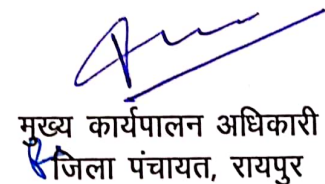 मुख्य कार्यपालन अधिकारी
जिला पंचायत, रायपुर